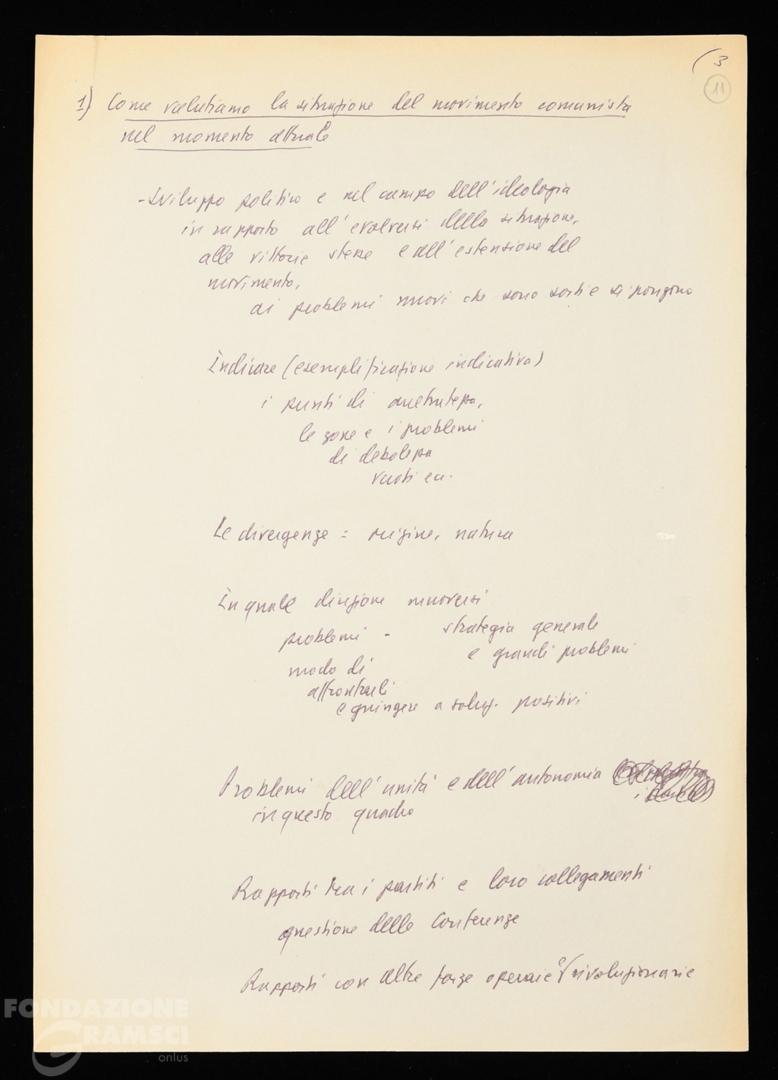 (3
11
1) Come valutiamo la situazione del movimento comunista
nel momento attuale
- Sviluppo politico e nel campo dell'ideologia
in rapporto all'evolversi della situazione,
alle vittorie stesse e all'estensione del
movimento,
ai problemi nuovi che sono sorti e si pongono
Indicare (esemplificazione indicativa)
i punti di arretratezza,
le zone e i problemi
di debolezza
vuoti ecc.
Le divergenze = origine, natura
In quale direzione muoversi
problemi - strategia generale
modo di e grandi problemi
affrontarli
e giungere a soluz. positivi
Problemi dell'unità e dell'autonomia
in questo quadro
Rapporti tra i partiti e loro collegamenti
questione delle Conferenze
Rapporti con altre forze operaie e rivoluzionarie
FONDAZIONE
GRAMSCI
onlus